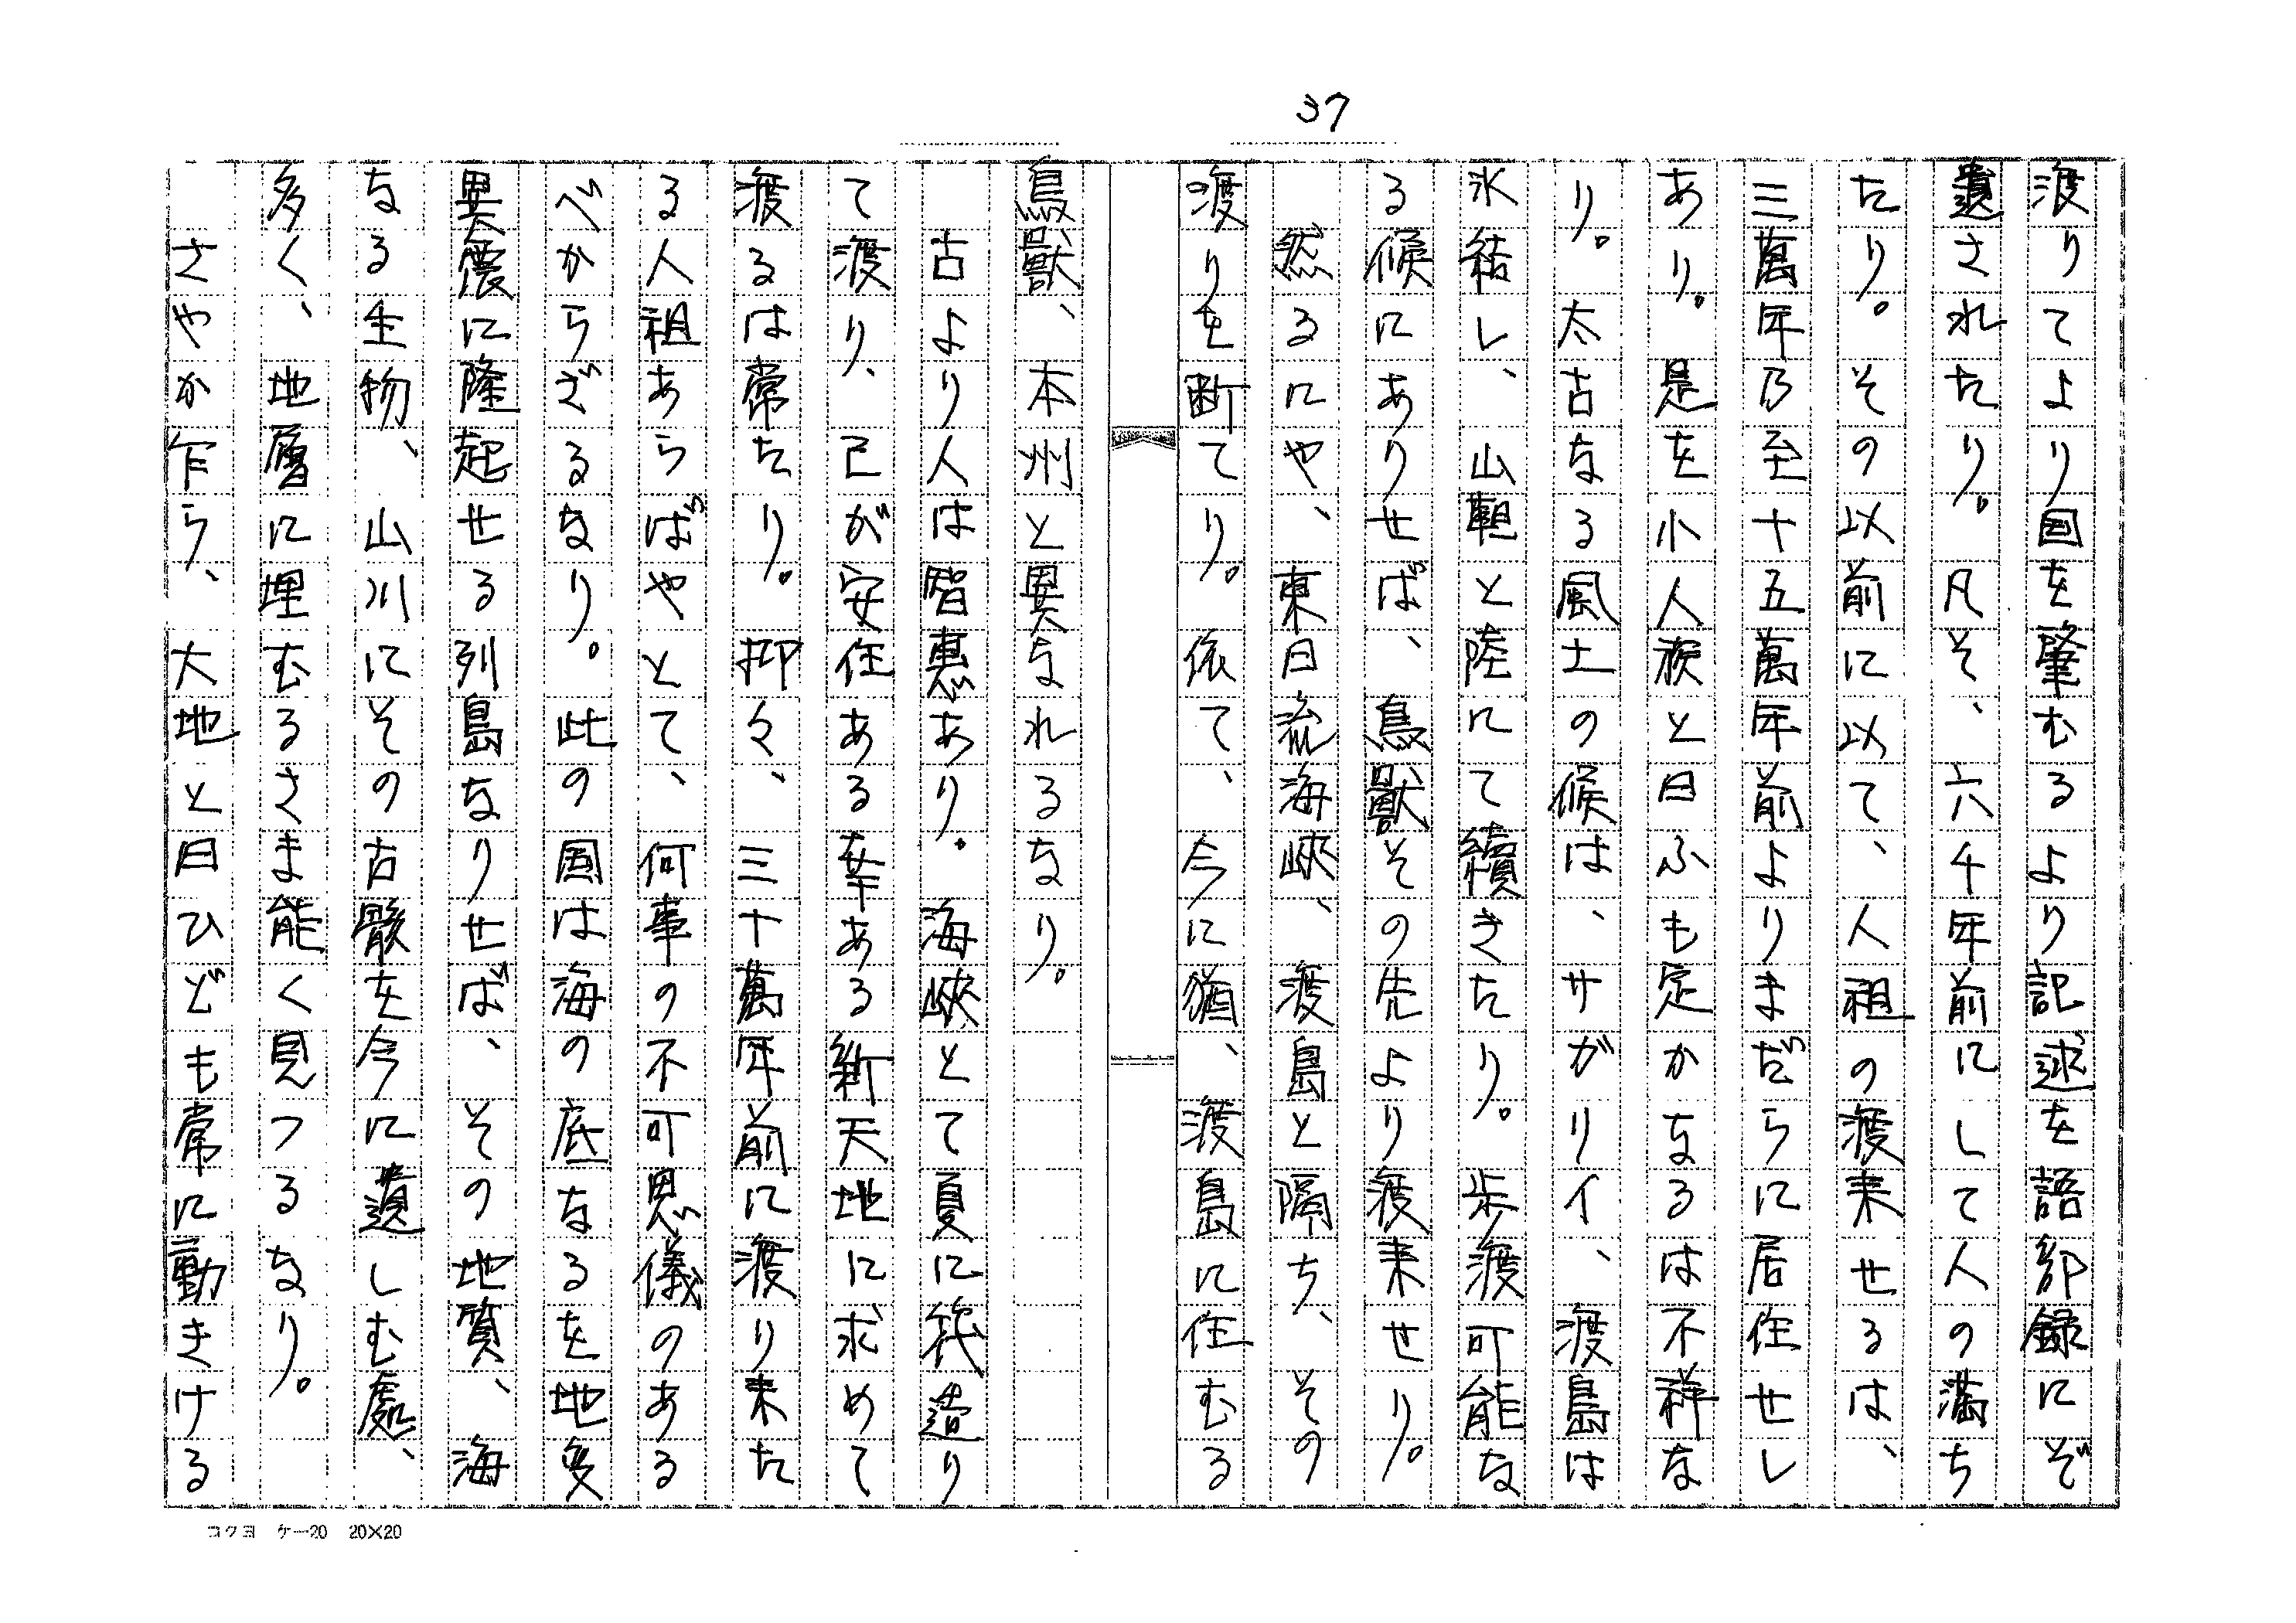 37
渡りてより国を肇むるより記逑を語部録にぞ
遺されたり。凡そ、六千年前にして人の満ち
たり。その以前に以て、人祖の渡来せるは、
三萬年乃至十五萬年前よりまだらに居住せし
あり。是を小人族と曰ふも定かなるは不祥な
り。太古なる風土の候は、サガリイ、渡島は
氷結し、山靼と陸にて續きたり。歩渡可能な
る候にありせば、鳥獸その先より渡来せり。
然るにや、東日流海峽、渡島と隔ち、その
渡りを断てり。依て、今に猶、渡島に住むる
鳥獸、本州と異なれるなり。
古より人は智惠あり。海峽とて夏に筏造り
て渡り、己が安住ある幸ある新天地に求めて
渡るは常たり。抑々、三十萬年前に渡り来た
る人祖あらばやとて、何事の不可思儀のある
べからざるなり。此の国は海の底なるを地変
異震に隆起せる列島なりせば、その地質、海
なる生物、山川にその古骸を今に遺しむ處、
多く、地層に埋むるさま能く見つるなり。
さやか乍ら、大地と曰ひども常に動きける
コクヨ ケー20 20×20